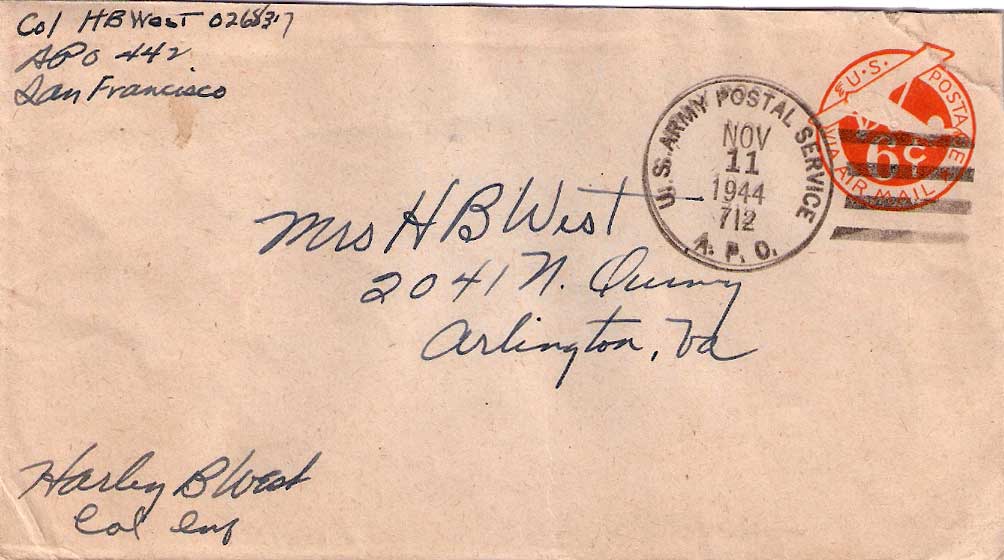 Col HB West
APO 442
San Francisco
U.S. POSTAGE
VIA AIR MAIL
6¢
U.S. ARMY POSTAL SERVICE
NOV
11
1944
712
A. P. O.
Mrs HB West
2041 N. Quincy
Arlington, Va
Harley B West
Col